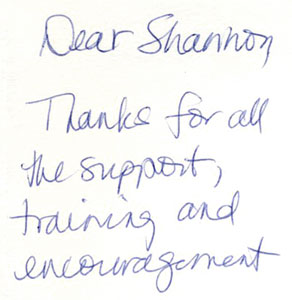 Dear Shannon
Thanks for all
the support,
training and
encouragement